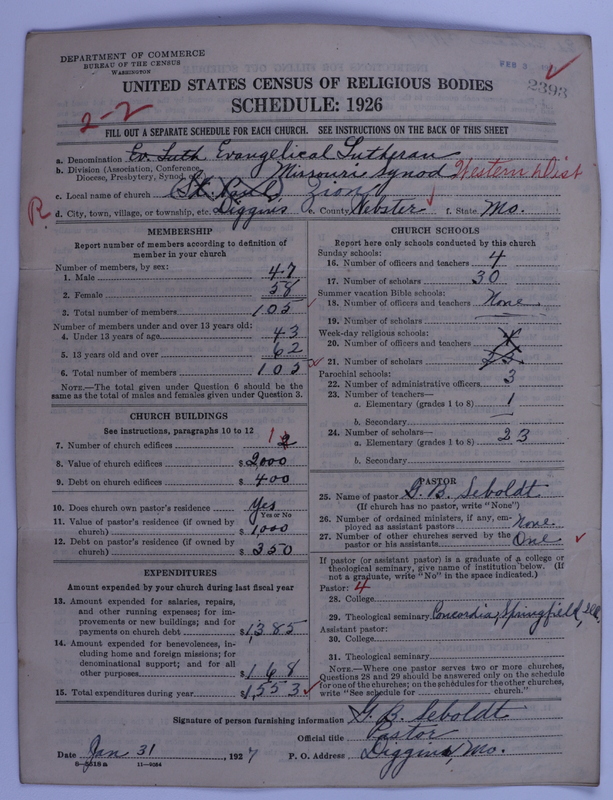 DEPARTMENT OF COMMERCE
BUREAU OF THE CENSUS
WASHINGTON
FEB 3
2393
UNITED STATES CENSUS OF RELIGIOUS BODIES
SCHEDULE: 1926
2-2
FILL OUT A SEPARATE SCHEDULE FOR EACH CHURCH. SEE INSTRUCTIONS ON THE BACK OF THIS SHEET
a. Denomination Ev. Luth. Evangelical Lutheran
b. Division (Association, Conference, Diocese, Presbytery, Synod, etc. Missouri Synod Western Dist
c. Local name of church St. Paul Zion
R
d. City, town, village, or township, etc. Diggins e. County Webster f. State Mo.
MEMBERSHIP
Report number of members according to definition of member in your church
Number of members, by sex:
1. Male 47
2. Female 58
3. Total number of members 105
Number of members under and over 13 years old:
4. Under 13 years of age 43
5. 13 years old and over 62
6. Total number of members 105
NOTE.—The total given under Question 6 should be the same as the total of males and females given under Question 3.
CHURCH BUILDINGS
See instructions, paragraphs 10 to 12
7. Number of church edifices 1 2
8. Value of church edifices $ 2000
9. Debt on church edifices $ 400
10. Does church own pastor's residence? Yes
Yes or No
11. Value of pastor's residence (if owned by church) $ 1,000
12. Debt on pastor's residence (if owned by church) $ 350
EXPENDITURES
Amount expended by your church during last fiscal year
13. Amount expended for salaries, repairs, and other running expenses; for improvements or new buildings; and for payments on church debt $ 1,385
14. Amount expended for benevolences, including home and foreign missions; for denominational support; and for all other purposes $ 168
15. Total expenditures during year $ 1,553
CHURCH SCHOOLS
Report here only schools conducted by this church
Sunday schools:
16. Number of officers and teachers 4
17. Number of scholars 30
Summer vacation Bible schools:
18. Number of officers and teachers None
19. Number of scholars
Week-day religious schools:
20. Number of officers and teachers
21. Number of scholars
Parochial schools:
22. Number of administrative officers 3
23. Number of teachers—
a. Elementary (grades 1 to 8) 1
b. Secondary
24. Number of scholars—
a. Elementary (grades 1 to 8) 23
b. Secondary
PASTOR
25. Name of pastor G. B. Seboldt
(If church has no pastor, write "None")
26. Number of ordained ministers, if any, employed as assistant pastors None
27. Number of other churches served by the pastor or his assistants One
If pastor (or assistant pastor) is a graduate of a college or theological seminary, give name of institution below. (If not a graduate, write "No" in the space indicated.)
Pastor: 4
28. College
29. Theological seminary Concordia, Springfield, Ill.
Assistant pastor:
30. College
31. Theological seminary
NOTE.—Where one pastor serves two or more churches, Questions 28 and 29 should be answered only on the schedule for one of the churches; on the schedules for the other churches, write "See schedule for church."
Signature of person furnishing information G. B. Seboldt
Official title Pastor
Date Jan 31, 1927 P. O. Address Diggins, Mo.
8-5518 a 11-9064